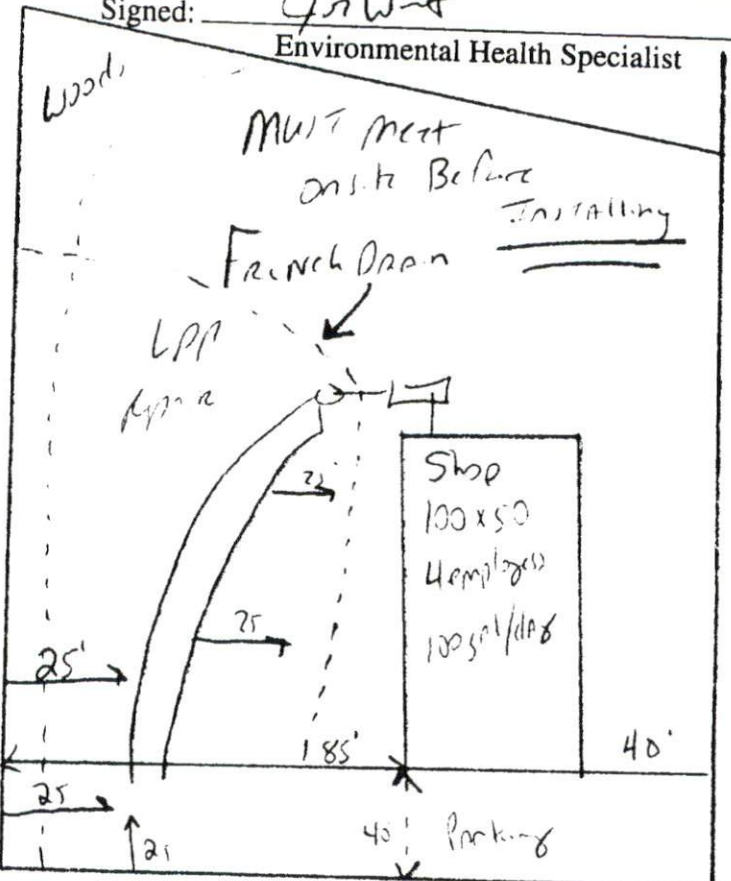 Signed:
Environmental Health Specialist
Woods
MUST Meet
onsite Before
Installing
French Drain
LPP
Repair
Shop
100 x 50
4 employees
100 gal/day
25
25'
185'
40'
25
25
40' Parking